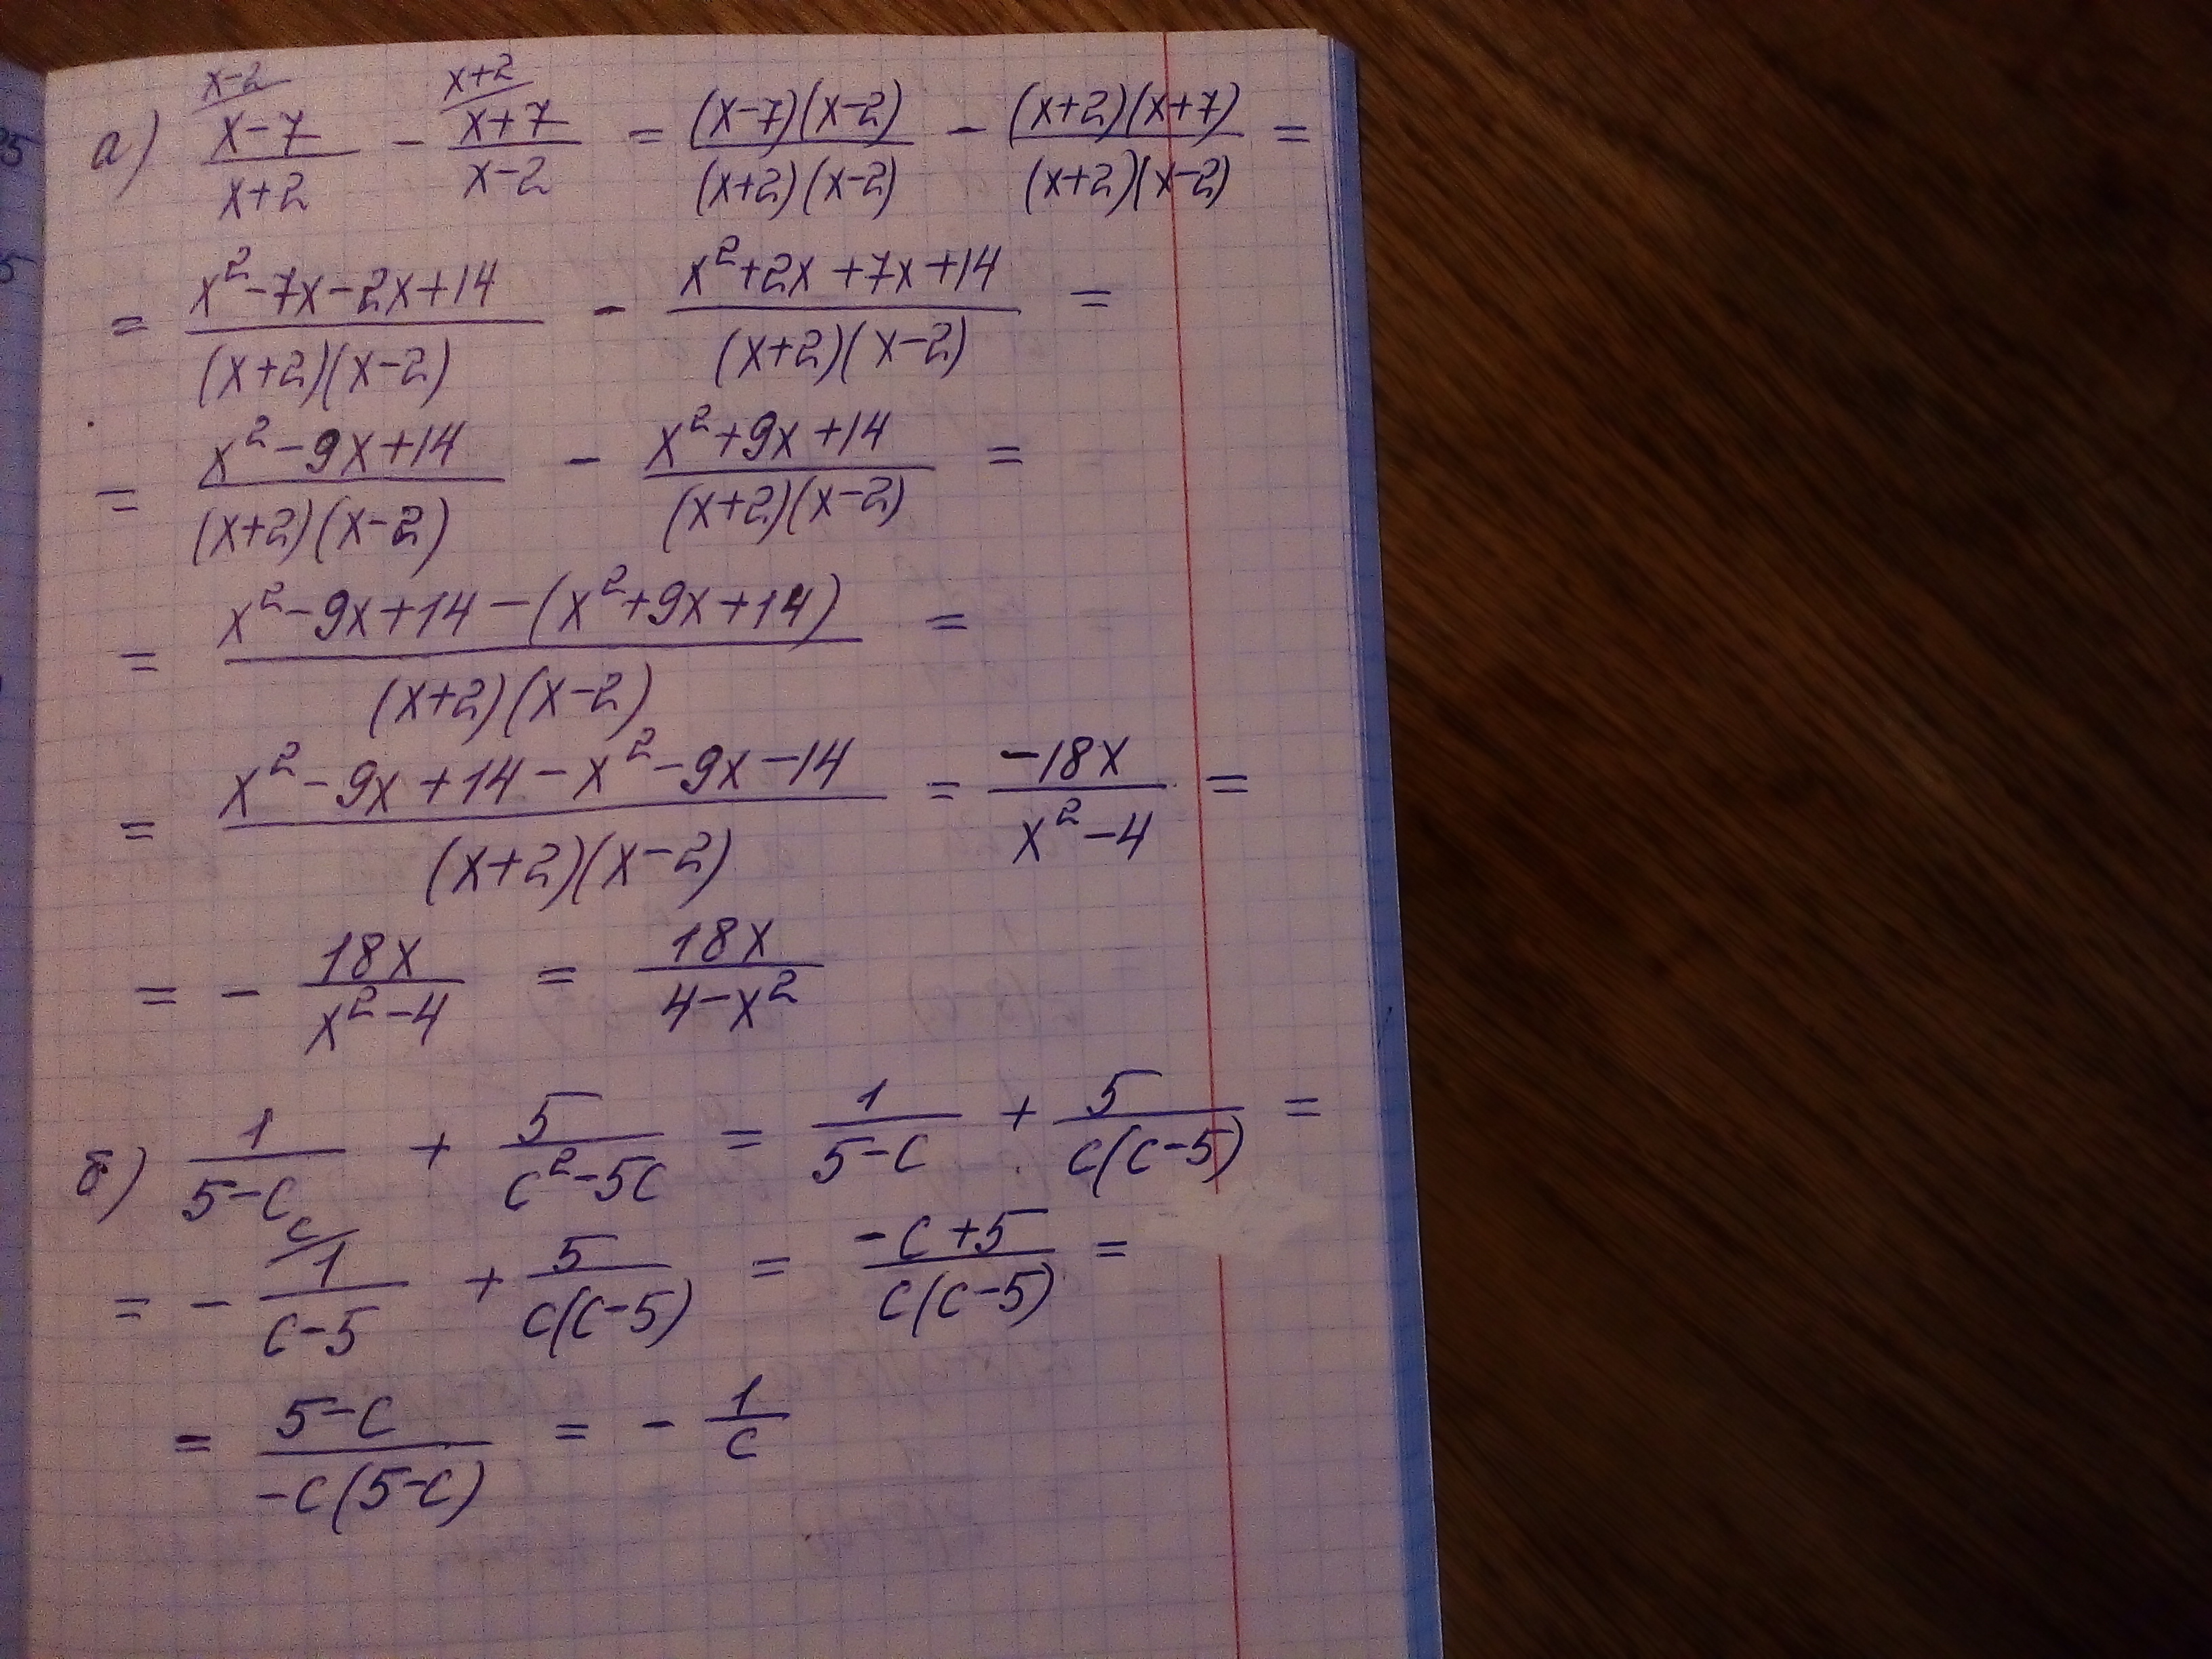 а) x-2/ (x-7)/(x+2) - x+2/ (x+7)/(x-2) = ((x-7)(x-2))/((x+2)(x-2)) - ((x+2)(x+7))/((x+2)(x-2)) =
= (x²-7x-2x+14)/((x+2)(x-2)) - (x²+2x+7x+14)/((x+2)(x-2)) =
= (x²-9x+14)/((x+2)(x-2)) - (x²+9x+14)/((x+2)(x-2)) =
= (x²-9x+14-(x²+9x+14))/((x+2)(x-2)) =
= (x²-9x+14-x²-9x-14)/((x+2)(x-2)) = (-18x)/(x²-4) =
= - (18x)/(x²-4) = (18x)/(4-x²)
б) 1/(5-c) + 5/(c²-5c) = 1/(5-c) + 5/(c(c-5)) =
= - c/ 1/(c-5) + 5/(c(c-5)) = (-c+5)/(c(c-5)) =
= (5-c)/(-c(5-c)) = - 1/c